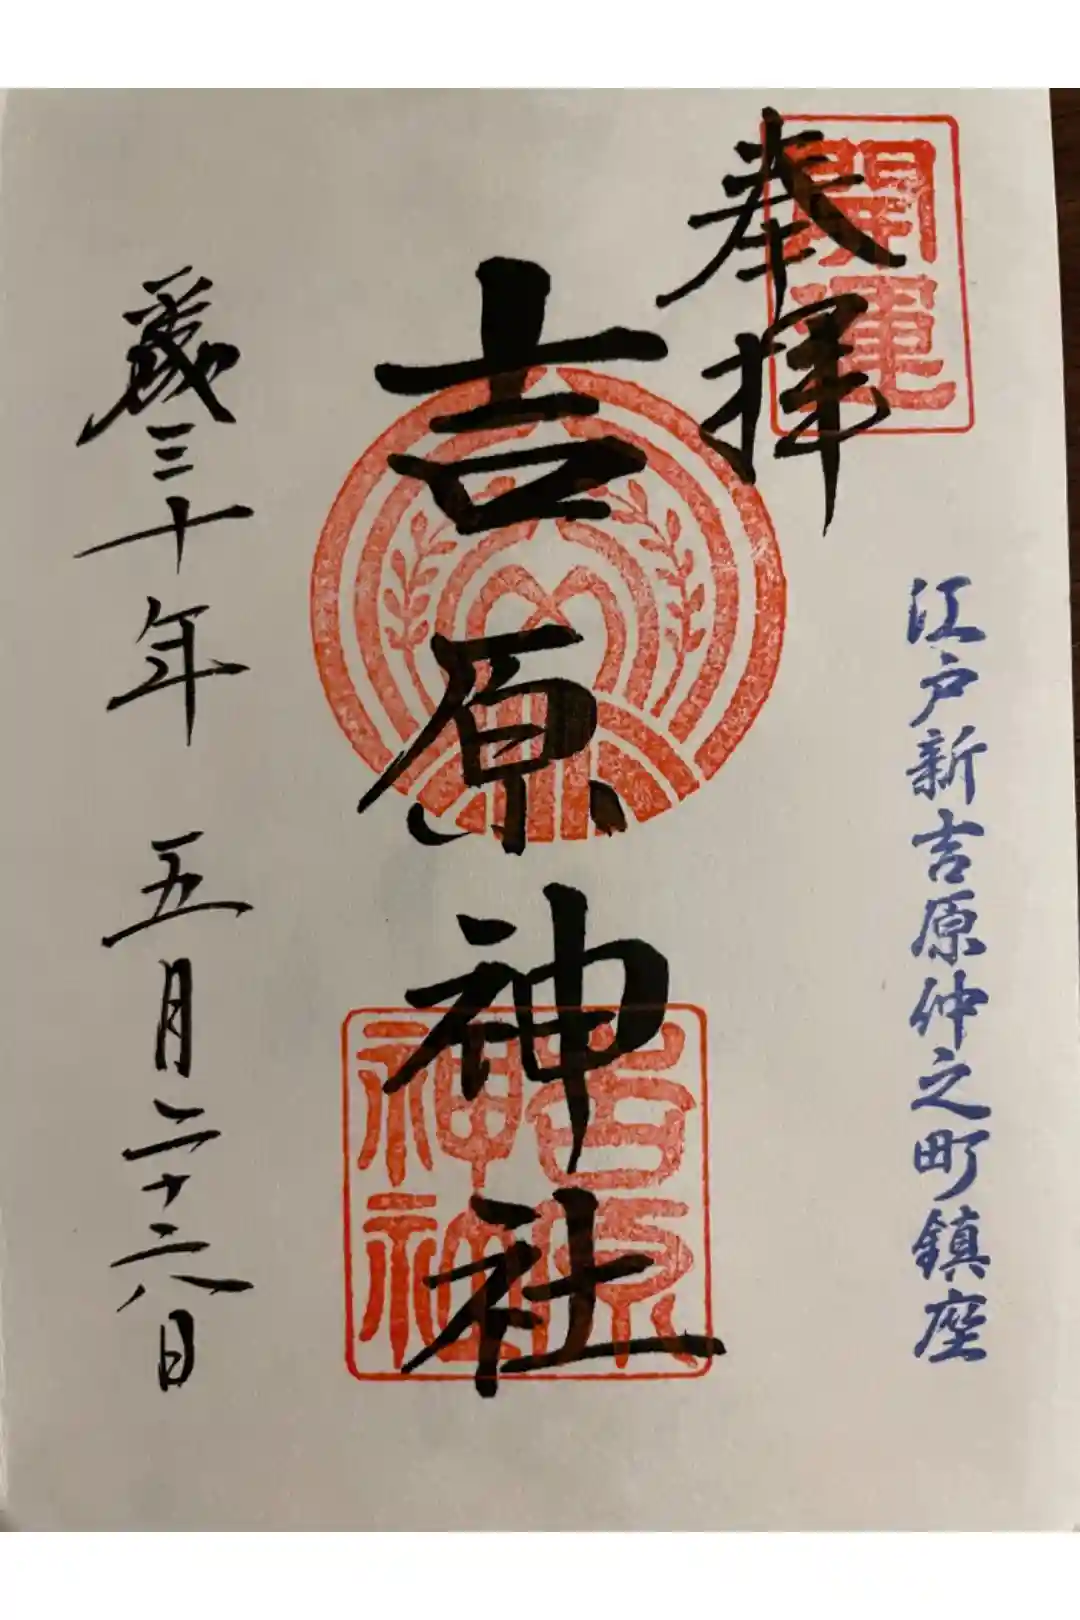 開運
奉拝
江戸新吉原仲之町鎮座
吉原神社
吉原神社
歳三十年 五月二十六日